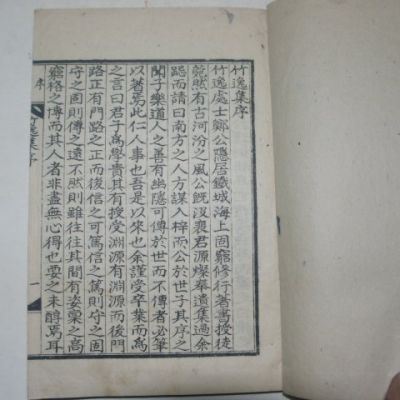 竹逸集序
竹逸處士鄭公隱居鐵城海上固窮修行著書授徒
菀然有古河汾之風公旣沒裵君源燦奉遺集過余
跽而請曰南方之人方謀入梓而公於世子其序之
聞子樂道人之善有幽隱可傳於世而不傳者必筆
以著焉此仁人事也吾是以來也余謹受卒業而爲
之言曰君子爲學貴其有授受淵源有淵源而後門
路正有門路之正而後信之可篤信之篤則守之固
守之固則傳之遠不然則雖往往其間有姿稟之高
窮格之博而其人者非盡無心得也要之未醇焉耳
序
逸集序
一